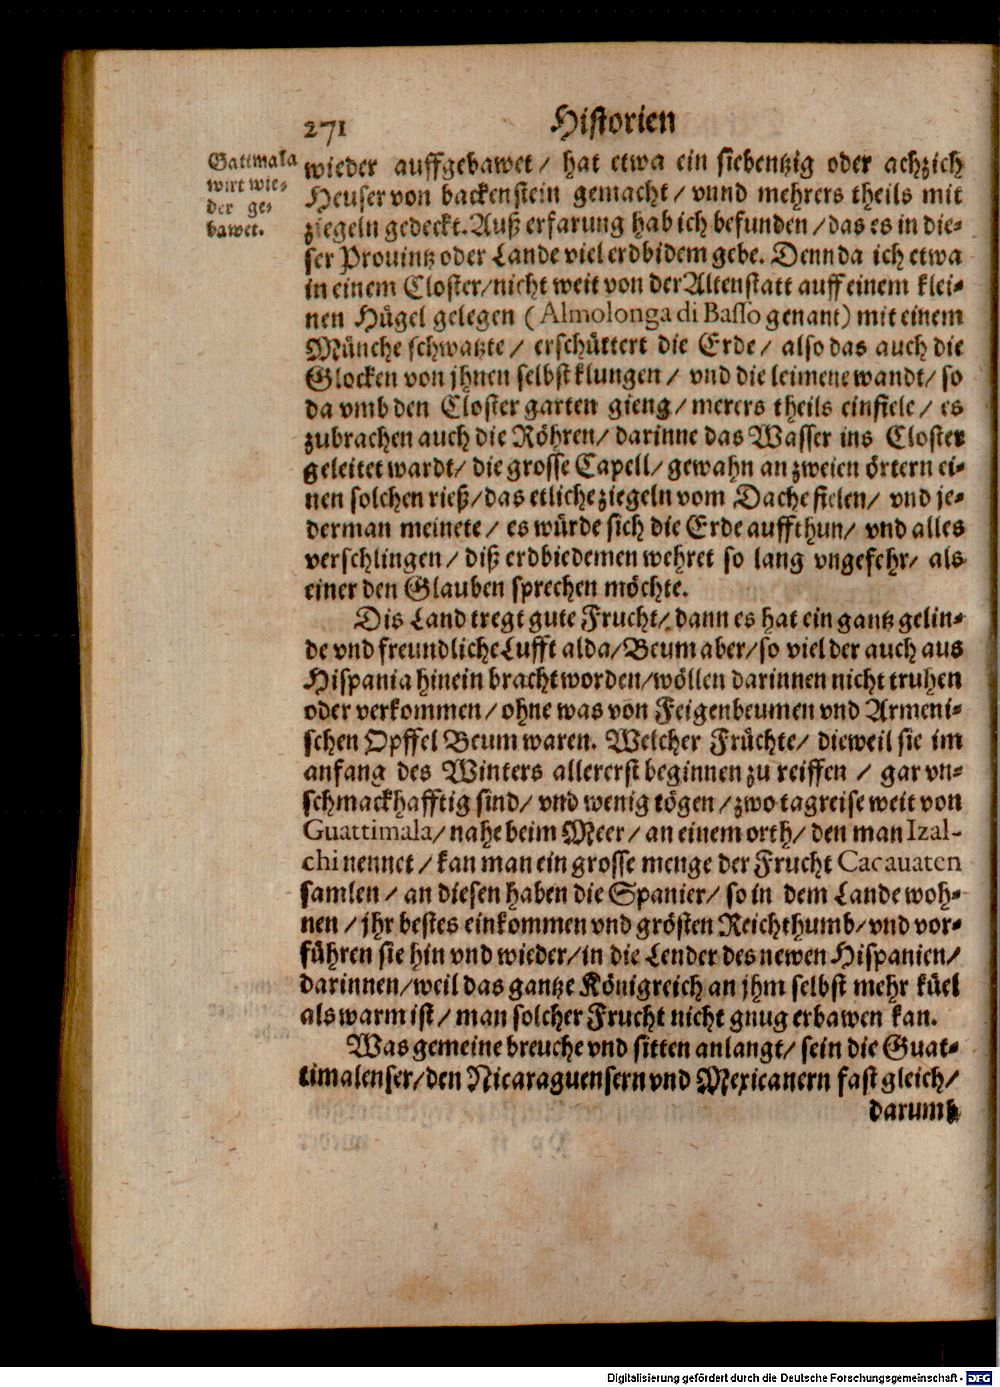 271 Historien
Gattmala
wirt wie-
der ge-
bawet.
wieder auffgebawet / hat etwa ein siebentzig oder achzich
Heuser von backenstein gemacht / vnnd mehrers theils mit
ziegeln gedeckt. Auß erfarung hab ich befunden / das es in die-
ser Prouintz oder Lande viel erdbidem gebe. Denn da ich etwa
in einem Closter / nicht weit von der Altenstatt auff einem klei-
nen Hügel gelegen ( Almolonga di Basso genant) mit einem
Münche schwatzte / erschüttert die Erde / also das auch die
Glocken von jhnen selbst klungen / vnd die leimene wandt / so
da vmb den Closter garten gieng / merers theils einfiele / es
zubrachen auch die Röhren / darinne das Wasser ins Closter
geleitet wardt / die grosse Capell / gewahn an zweien örtern ei-
nen solchen rieß / das etliche ziegeln vom Dache fielen / vnd je-
derman meinete / es würde sich die Erde auffthun / vnd alles
verschlingen / diß erdbiedemen wehret so lang vngefehr / als
einer den Glauben sprechen möchte.
Dis Land tregt gute Frucht / dann es hat ein gantz gelin-
de vnd freundliche Lufft alda / Beum aber / so viel der auch aus
Hispania hinein bracht worden / wöllen darinnen nicht truhen
oder verkommen / ohne was von Feigenbeumen vnd Armeni-
schen Opffel Beum waren. Welcher Früchte / dieweil sie im
anfang des Winters allererst beginnen zu reiffen / gar vn-
schmackhafftig sind / vnd wenig tögen / zwo tagreise weit von
Guattimala / nahe beim Meer / an einem orth / den man Izal-
chi nennet / kan man ein grosse menge der Frucht Cacauaten
samlen / an diesen haben die Spanier / so in dem Lande woh-
nen / jhr bestes einkommen vnd grösten Reichthumb / vnd vor-
führen sie hin vnd wieder / in die Lender des newen Hispanien /
darinnen / weil das gantze Königreich an jhm selbst mehr küel
als warm ist / man solcher Frucht nicht gnug erbawen kan.
Was gemeine breuche vnd sitten anlangt / sein die Guat-
timalenser / den Nicaraguensern vnd Mexicanern fast gleich /
darumb
Digitalisierung gefördert durch die Deutsche Forschungsgemeinschaft - DFG